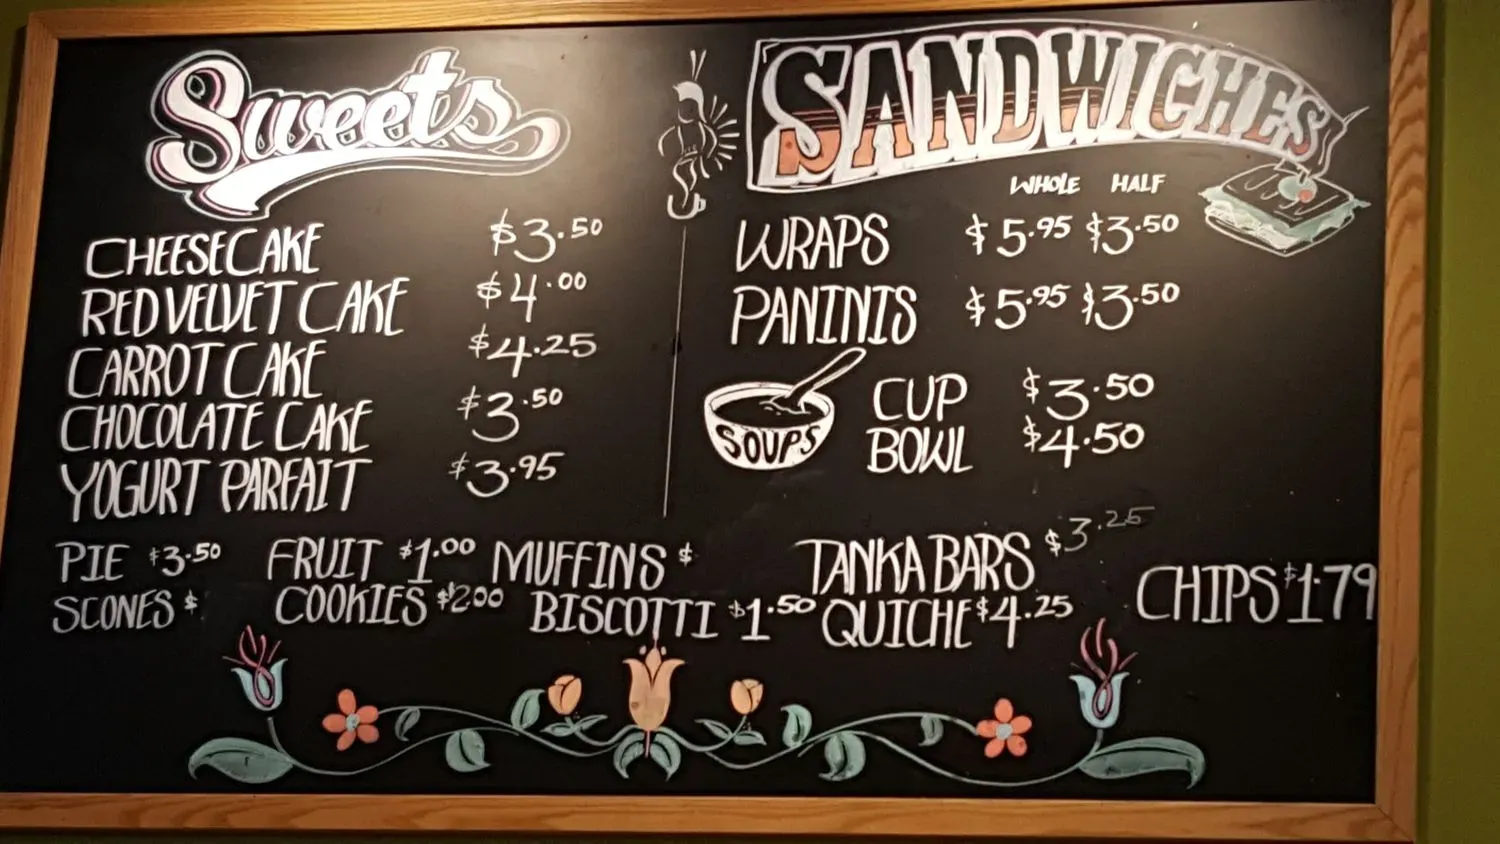 Sweets
CHEESECAKE $3.50
RED VELVET CAKE $4.00
CARROT CAKE $4.25
CHOCOLATE CAKE $3.50
YOGURT PARFAIT $3.95
SANDWICHES
WHOLE HALF
WRAPS $5.95 $3.50
PANINIS $5.95 $3.50
SOUPS
CUP $3.50
BOWL $4.50
PIE $3.50 FRUIT $1.00 MUFFINS $ TANKA BARS $3.25
SCONES $ COOKIES $2.00 BISCOTTI $1.50 QUICHE $4.25 CHIPS $1.79